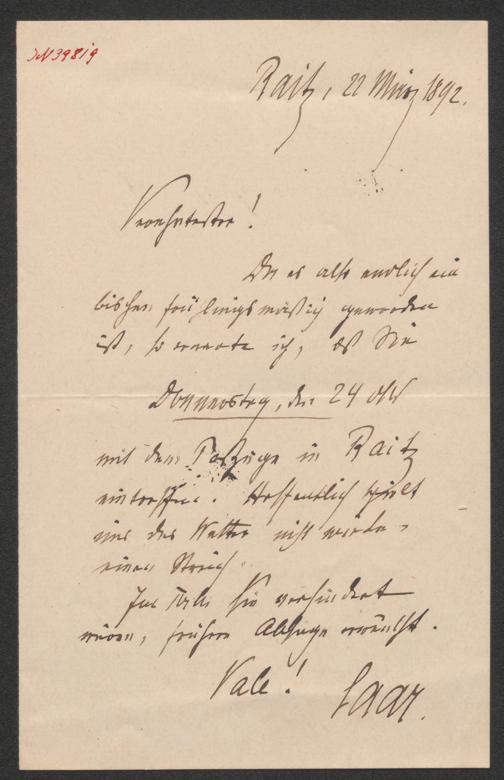 JN 39819
Raitz, 22 März 1892.
Verehrtester!
Da es also endlich ein
bischen frühlingsmäßig geworden
ist, so erwarte ich, daß Sie
Donnerstag, den 24
mit dem Postzuge in Raitz
eintreffen. Hoffentlich spielt
uns das Wetter nicht wieder
einen Streich.
Im Falle Sie verhindert
wären, frühere Absage erwünscht.
Vale! Saar.